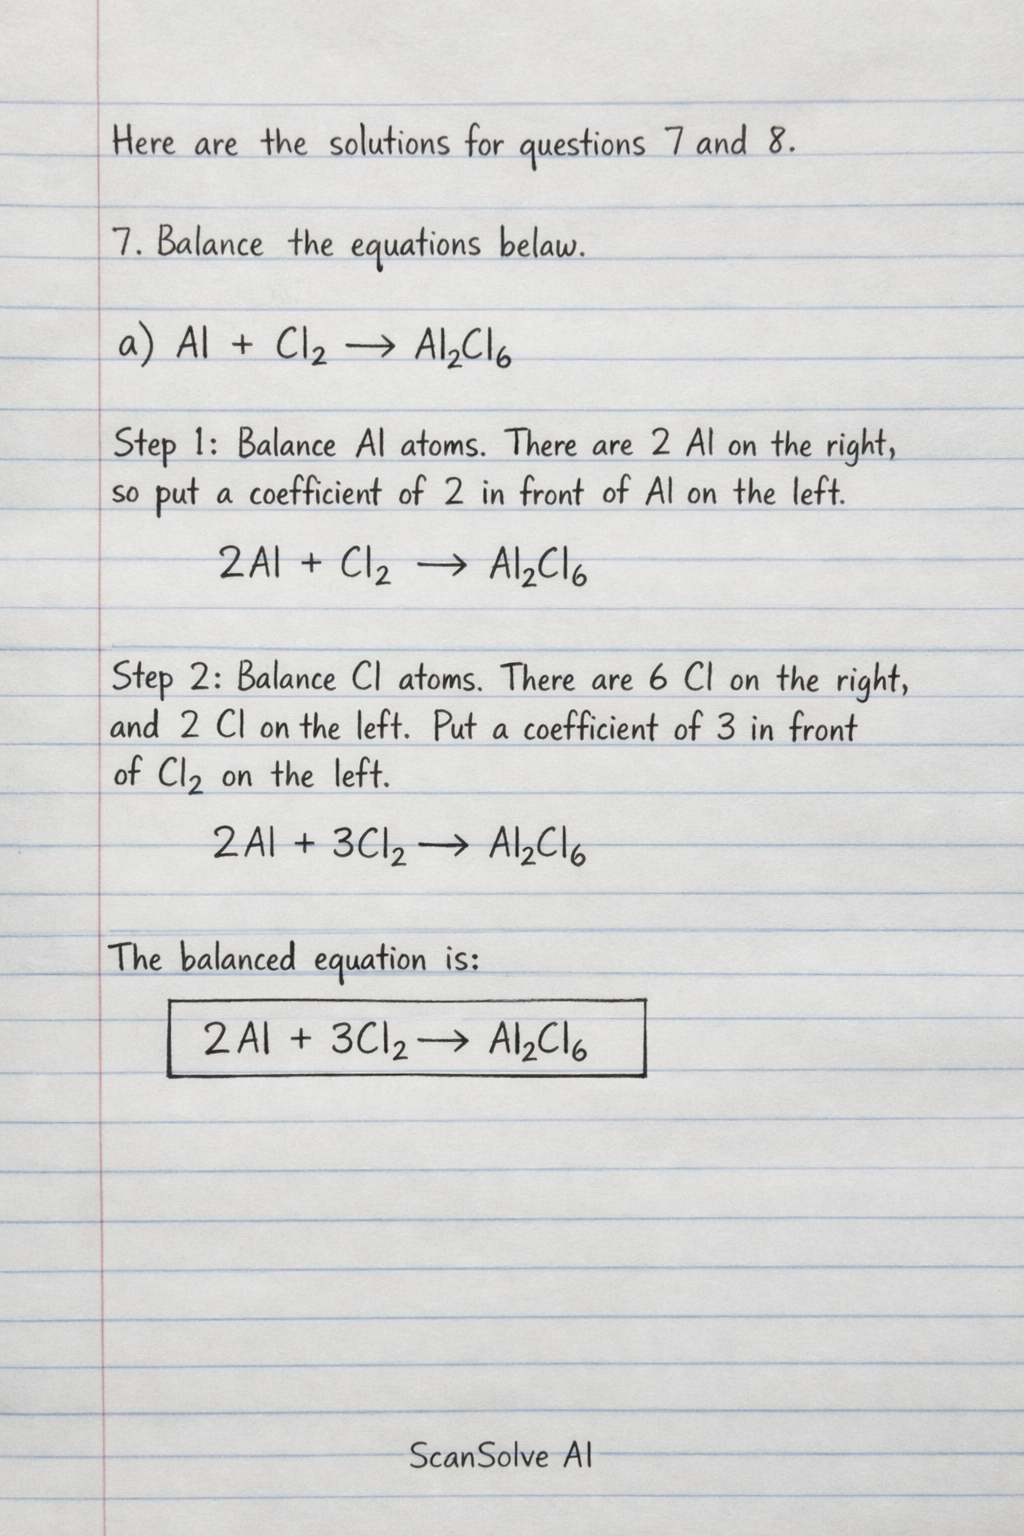 Here are the solutions for questions 7 and 8.
7. Balance the equations belaw.
a) Al + Cl₂ → Al₂Cl₆
Step 1: Balance Al atoms. There are 2 Al on the right,
so put a coefficient of 2 in front of Al on the left.
2Al + Cl₂ → Al₂Cl₆
Step 2: Balance Cl atoms. There are 6 Cl on the right,
and 2 Cl on the left. Put a coefficient of 3 in front
of Cl₂ on the left.
2Al + 3Cl₂ → Al₂Cl₆
The balanced equation is:
2Al + 3Cl₂ → Al₂Cl₆
ScanSolve AI